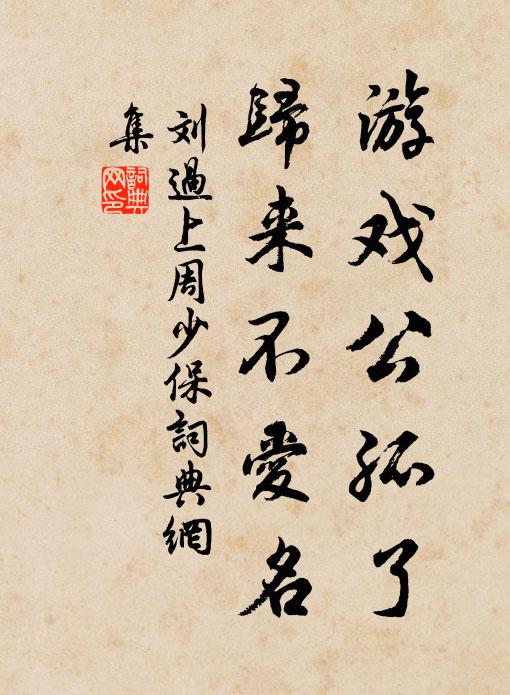 游戏公孤了
歸来不愛名
刘過上周少保詞典網
集
詞典
网印